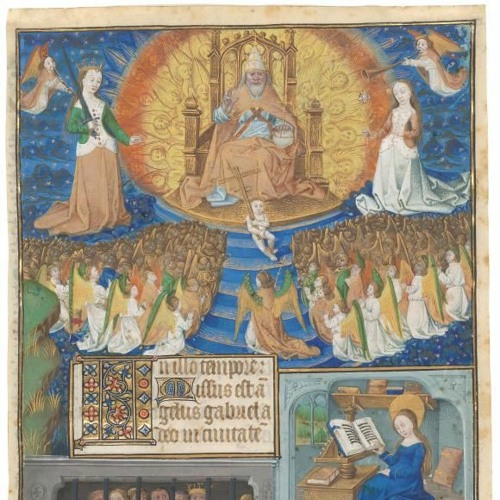 In illo tempore:
Missus est ā
gelus gabriel a
deo in ciuitatē